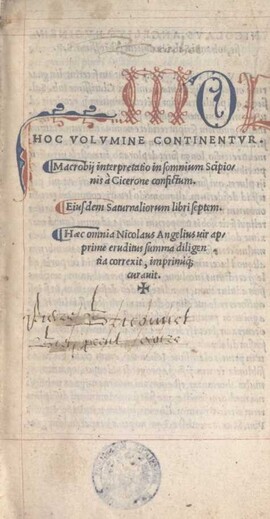 HOC VOLVMINE CONTINENTVR.
Macrobij interpretatio in somnium Scipio/
nis à Cicerone confictum.
Eiusdem Saturnaliorum libri septem.
Hæc omnia Nicolaus Angelius uir ap/
prime eruditus summa diligen
tia correxit, imprimiq;
curauit.